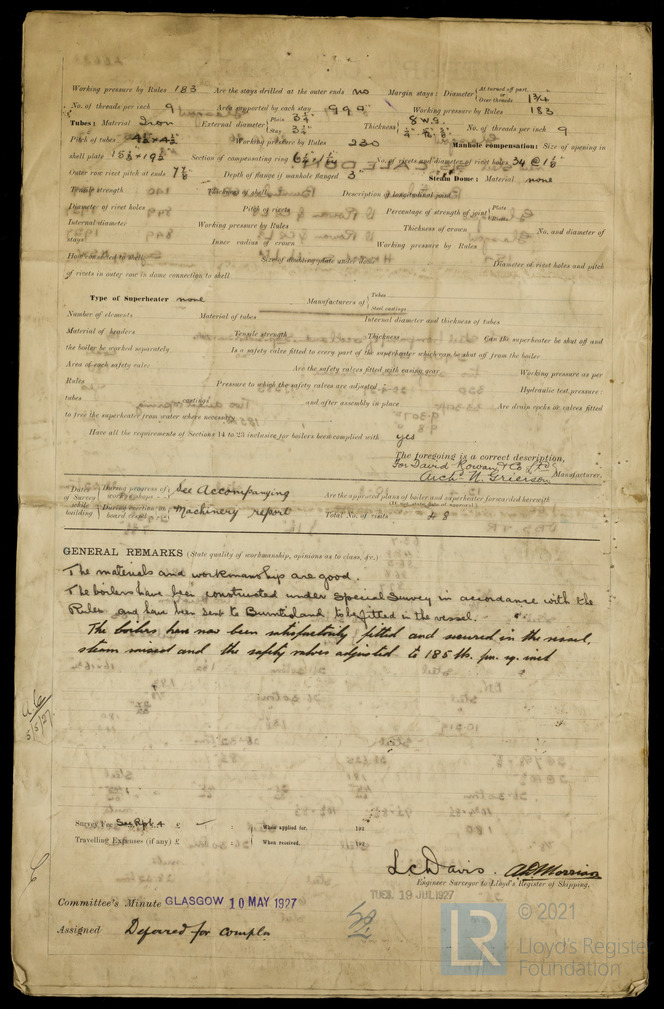 Working pressure by Rules 183 Are the stays drilled at the outer ends no Margin stays: Diameter { At turned off part, or Over threads 1 3/4
No. of threads per inch 9 Area supported by each stay 999 Working pressure by Rules 183
Tubes: Material Iron External diameter { Plain 3 1/4" Stay 3 1/4" Thickness { 8 W.G. No. of threads per inch 9
Pitch of tubes 4 1/2 x 4 1/2 Working pressure by Rules 230 Manhole compensation: Size of opening in
shell plate 15 1/2 x 19 1/2 Section of compensating ring No. of rivets and diameter of rivet holes 34 @ 1 1/8"
Outer row rivet pitch at ends 7 7/8 Depth of flange if manhole flanged 3" Steam Dome: Material none
Tensile strength Thickness of shell Description of longitudinal joint
Diameter of rivet holes Pitch of rivets Percentage of strength of joint { Plate Rivets
Internal diameter Working pressure by Rules Thickness of crown No. and diameter of
stays Inner radius of crown Working pressure by Rules
How connected to shell Size of doubling plate under dome Diameter of rivet holes and pitch
of rivets in outer row in dome connection to shell
Type of Superheater none Manufacturers of { Tubes Steel castings
Number of elements Material of tubes Internal diameter and thickness of tubes
Material of headers Tensile strength Thickness Can the superheater be shut off and
the boiler be worked separately Is a safety valve fitted to every part of the superheater which can be shut off from the boiler
Area of each safety valve Are the safety valves fitted with easing gear Working pressure as per
Rules Pressure to which the safety valves are adjusted Hydraulic test pressure:
tubes castings and after assembly in place Are drain cocks or valves fitted
to free the superheater from water where necessary
Have all the requirements of Sections 14 to 23 inclusive for boilers been complied with yes
The foregoing is a correct description,
For David Rowan & Co Ltd
Arch. W. Grierson Manufacturer.
Dates of Survey while building { During progress of work in shops - - See Accompanying Are the approved plans of boiler and superheater forwarded herewith
During erection on board vessel - - - Machinery report Total No. of visits 48
GENERAL REMARKS (State quality of workmanship, opinions as to class, &c.)
The materials and workmanship are good.
The boilers have been constructed under Special Survey in accordance with the
Rules and have been sent to Burntisland to be fitted in the vessel.
The boilers have now been satisfactorily fitted and secured in the vessel,
steam raised and the safety valves adjusted to 185 lbs. per sq. inch
5/5/27
Survey Fee See Rpt. 4 £ When applied for, 192
Travelling Expenses (if any) £ When received, 192
L C Davis. A E Morrison
Engineer Surveyor to Lloyd's Register of Shipping.
TUES. 19 JUL 1927
Committee's Minute GLASGOW 10 MAY 1927
Assigned Deferred for compln
LR © 2021
Lloyd's Register
Foundation